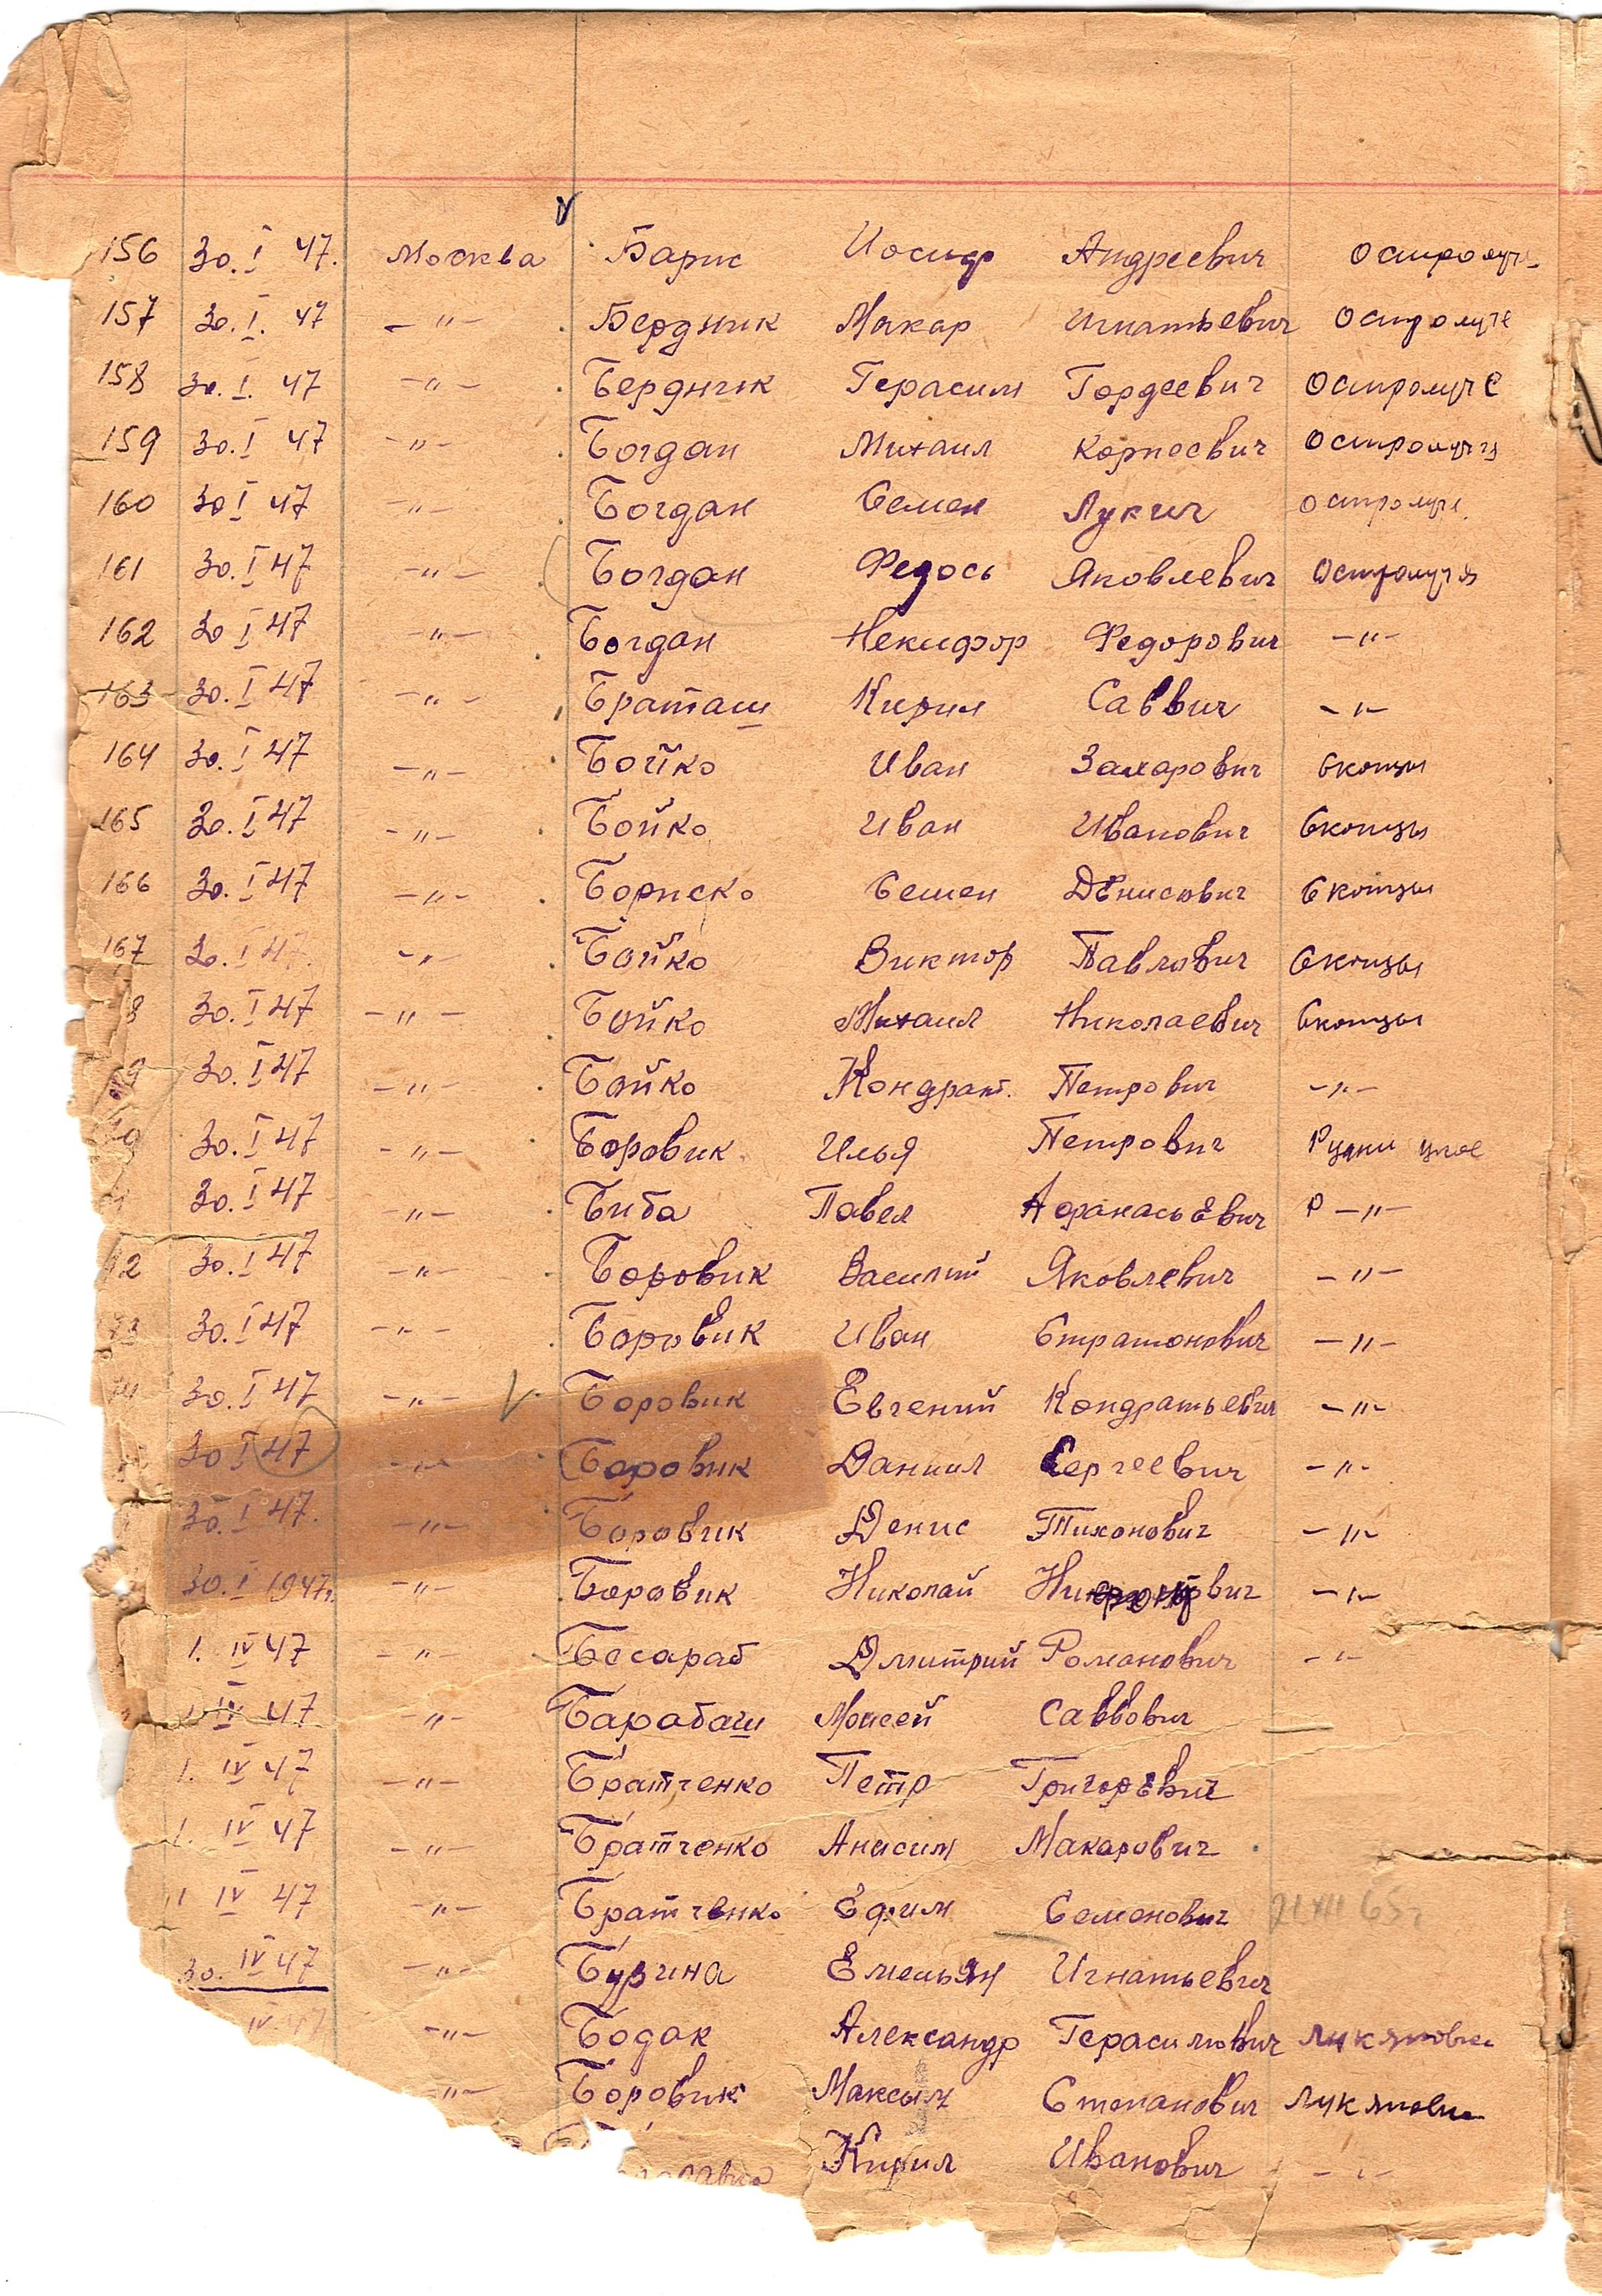 156 30.I 47. Москва Барис Иосиф Андреевич Остролуче
157 30.I. 47 -"- Бердник Макар Игнатьевич Остролуче
158 30.I. 47 -"- Бердник Герасим Гордеевич Остролуче
159 30.I 47 -"- Богдан Михаил Корнеевич Остролучья
160 30 I 47 -"- Богдан Семен Лукич Остролуче
161 30.I 47 -"- Богдан Федось Яковлевич Остролучья
162 30 I 47 -"- Богдан Некифор Федорович -"-
163 30.I 47 -"- Браташ Кирил Саввич -"-
164 30.I 47 -"- Бойко Иван Захарович Скопцы
165 30.I 47 -"- Бойко Иван Иванович Скопцы
166 30.I 47 -"- Бориско Семен Денисович Скопцы
167 30.I 47. -"- Бойко Виктор Павлович Скопцы
8 30.I 47 -"- Бойко Михаил Николаевич Скопцы
9 30.I 47 -"- Бойко Кондрат. Петрович -"-
30.I 47 -"- Боровик Илья Петрович Рудни
30.I 47 -"- Биба Павел Афанасьевич Р -"-
72 30.I 47 -"- Боровик Василий Яковлевич -"-
73 30.I 47 -"- Боровик Иван Стратонович -"-
74 30.I 47 -"- Боровик Евгений Кондратьевич -"-
30 I 47 -"- Боровик Даниил Сергеевич -"-
30.I 47. -"- Боровик Денис Тихонович -"-
30.I 1947г. -"- Боровик Николай -"-
1. IV 47 -"- Бесараб Дмитрий Романович -"-
1 IV 47 -"- Барабаш Моисей Саввович
1. IV 47 -"- Братченко Петр ГригорЕвич
1. IV 47 -"- Братченко Анисим Макарович
1 IV 47 -"- Братченко Ефим Семенович 65г
30. IV 47 -"- Емельян Игнатьевич
IV 47 -"- Бодак Александр Герасимович Лукяновка
-"- Боровик Максым Степанович Лукяновка
Кирил Иванович -"-